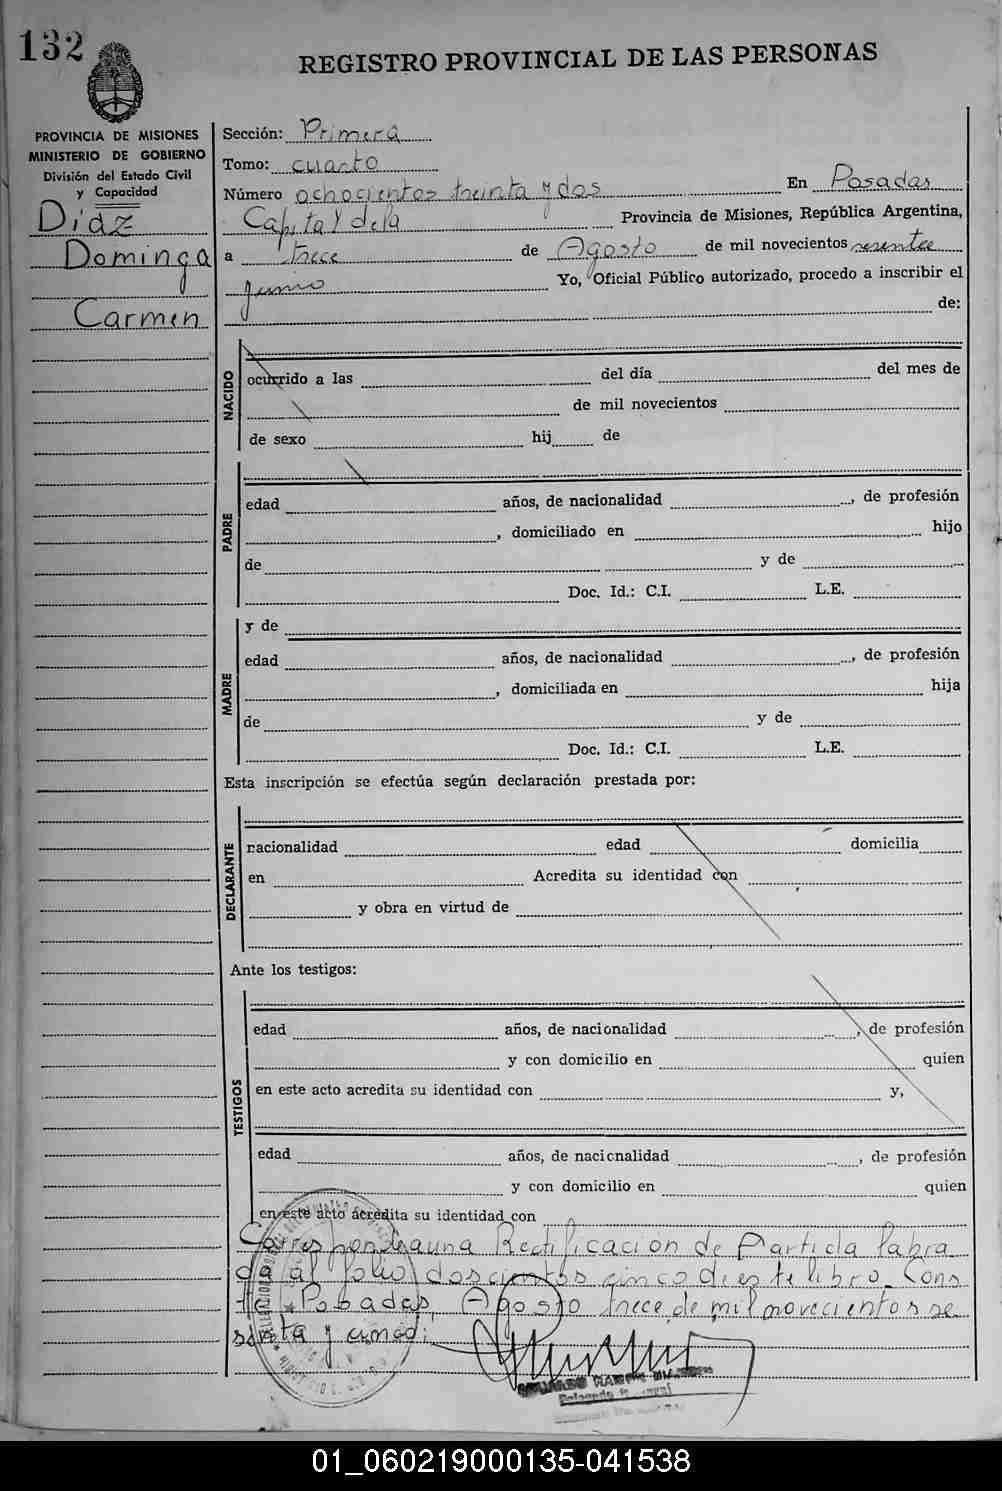 132
REGISTRO PROVINCIAL DE LAS PERSONAS
PROVINCIA DE MISIONES
MINISTERIO DE GOBIERNO
División del Estado Civil
y Capacidad
Díaz
Dominga
Carmen
Sección: Primera
Tomo: cuarto
Número ochocientos treinta y dos En Posadas
Capital de la Provincia de Misiones, República Argentina,
a trece de Agosto de mil novecientos sesenta
y Yo, Oficial Público autorizado, procedo a inscribir el
de:
NACIDO
ocurrido a las del día del mes de
de mil novecientos
de sexo hij de
PADRE
edad años, de nacionalidad , de profesión
, domiciliado en hijo
de y de
Doc. Id.: C.I. L.E.
MADRE
y de
edad años, de nacionalidad , de profesión
, domiciliada en hija
de y de
Doc. Id.: C.I. L.E.
Esta inscripción se efectúa según declaración prestada por:
DECLARANTE
nacionalidad edad domicilia
en Acredita su identidad con
y obra en virtud de
Ante los testigos:
TESTIGOS
edad años, de nacionalidad , de profesión
y con domicilio en quien
en este acto acredita su identidad con y,
edad años, de nacionalidad , de profesión
y con domicilio en quien
en este acto acredita su identidad con
Corresponde a una Rectificación de Partida labra
da al folio doscientos cinco de este libro. Cons
te. Posadas, Agosto trece de mil novecientos se
senta y
01_060219000135-041538